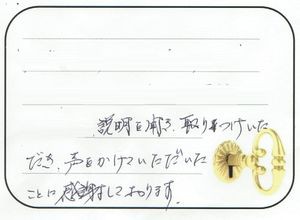 説明を頂き、取りつけいた
だき、声をかけていただいた
ことに感謝しております。